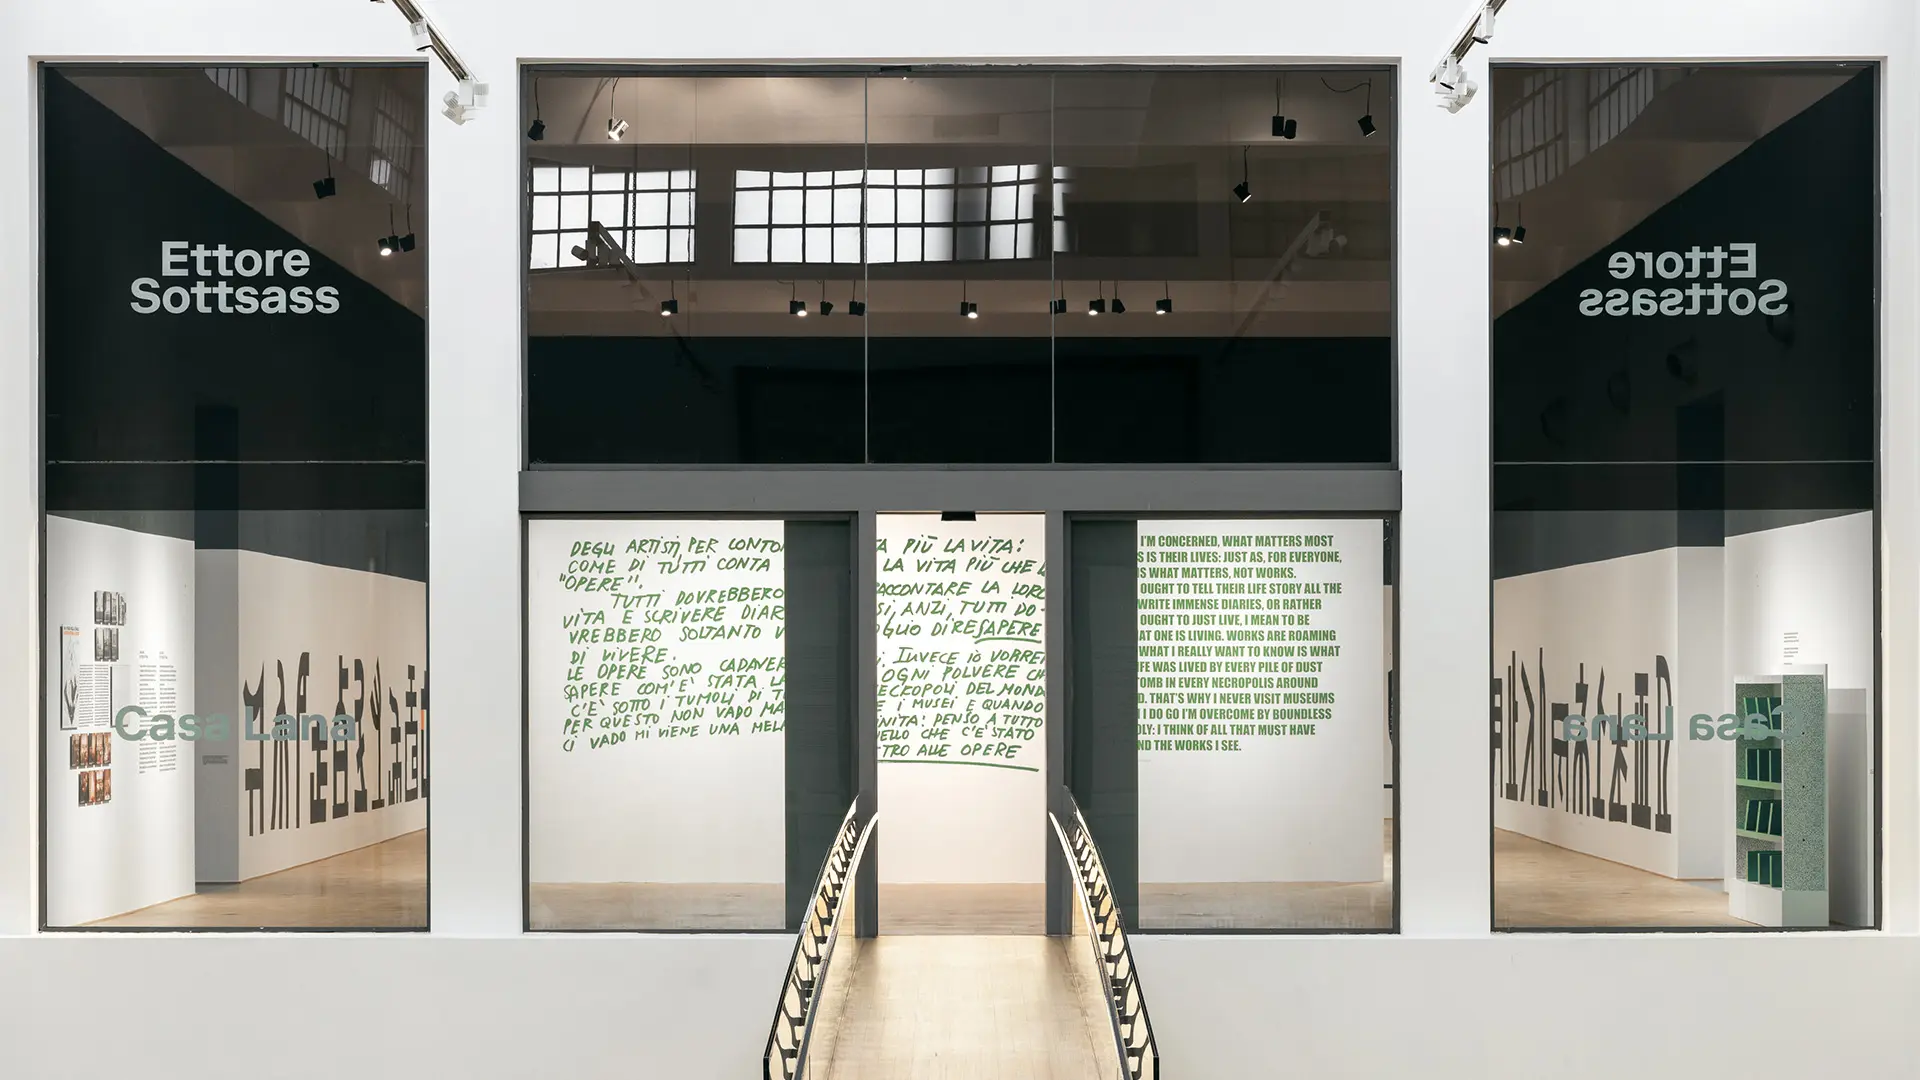 Ettore
Sottsass
Casa Lana
DEGLI ARTISTI, PER CONTO
COME DI TUTTI CONTA
"OPERE".
TUTTI DOVREBBERO
VITA E SCRIVERE DIAR
VREBBERO SOLTANTO V
DI VIVERE.
LE OPERE SONO CADAVER
SAPERE COM'È STATA LA
C'È SOTTO I TUMOLI DI T
PER QUESTO NON VADO MA
CI VADO MI VIENE UNA MEL
A PIÙ LA VITA:
LA VITA PIÙ CHE L
RACCONTARE LA LORO
SI, ANZI, TUTTI DO-
GLIO DIRE SAPERE
. INVECE IO VORREI
OGNI POLVERE CH
ECROPOLI DEL MONDO
E I MUSEI E QUANDO
INITA: PENSO A TUTTO
ELLO CHE C'E' STATO
TRO ALLE OPERE
I'M CONCERNED, WHAT MATTERS MOST
S IS THEIR LIVES: JUST AS, FOR EVERYONE,
IS WHAT MATTERS, NOT WORKS.
OUGHT TO TELL THEIR LIFE STORY ALL THE
WRITE IMMENSE DIARIES, OR RATHER
OUGHT TO JUST LIVE, I MEAN TO BE
AT ONE IS LIVING. WORKS ARE ROAMING
WHAT I REALLY WANT TO KNOW IS WHAT
IFE WAS LIVED BY EVERY PILE OF DUST
TOMB IN EVERY NECROPOLIS AROUND
D. THAT'S WHY I NEVER VISIT MUSEUMS
I DO GO I'M OVERCOME BY BOUNDLESS
OLY: I THINK OF ALL THAT MUST HAVE
ND THE WORKS I SEE.
Ettore
Sottsass
Casa Lana